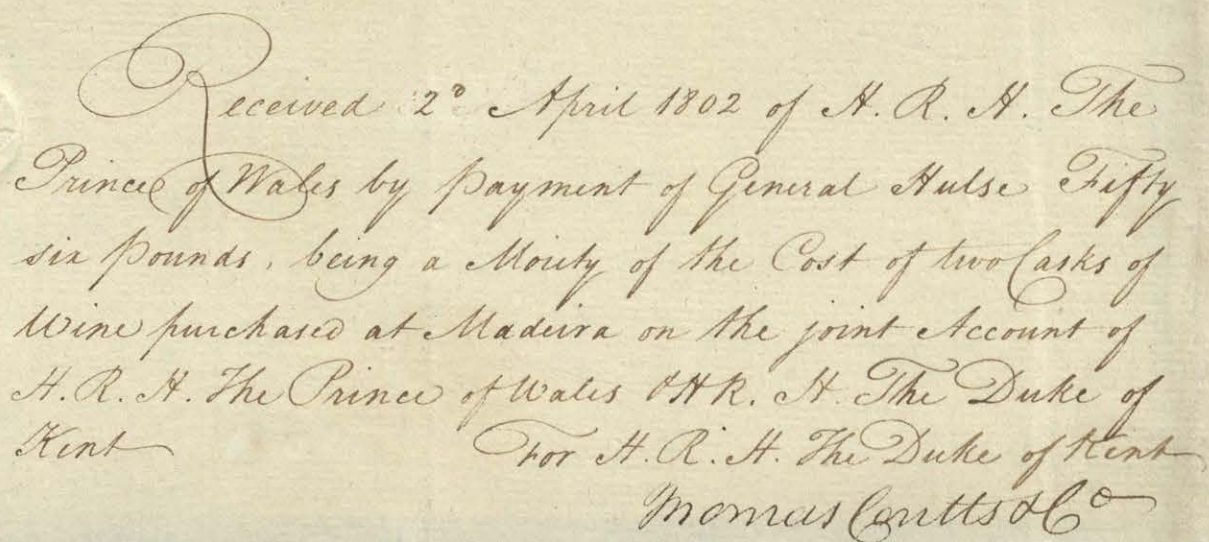 Received 2d April 1802 of H. R. H. The
Prince of Wales by payment of General Hulse Fifty
six pounds, being a Moiety of the Cost of two Casks of
Wine purchased at Madeira on the joint Account of
H. R. H. The Prince of Wales & H R. H. The Duke of
Kent For H. R. H. The Duke of Kent
Thomas Coutts & Co